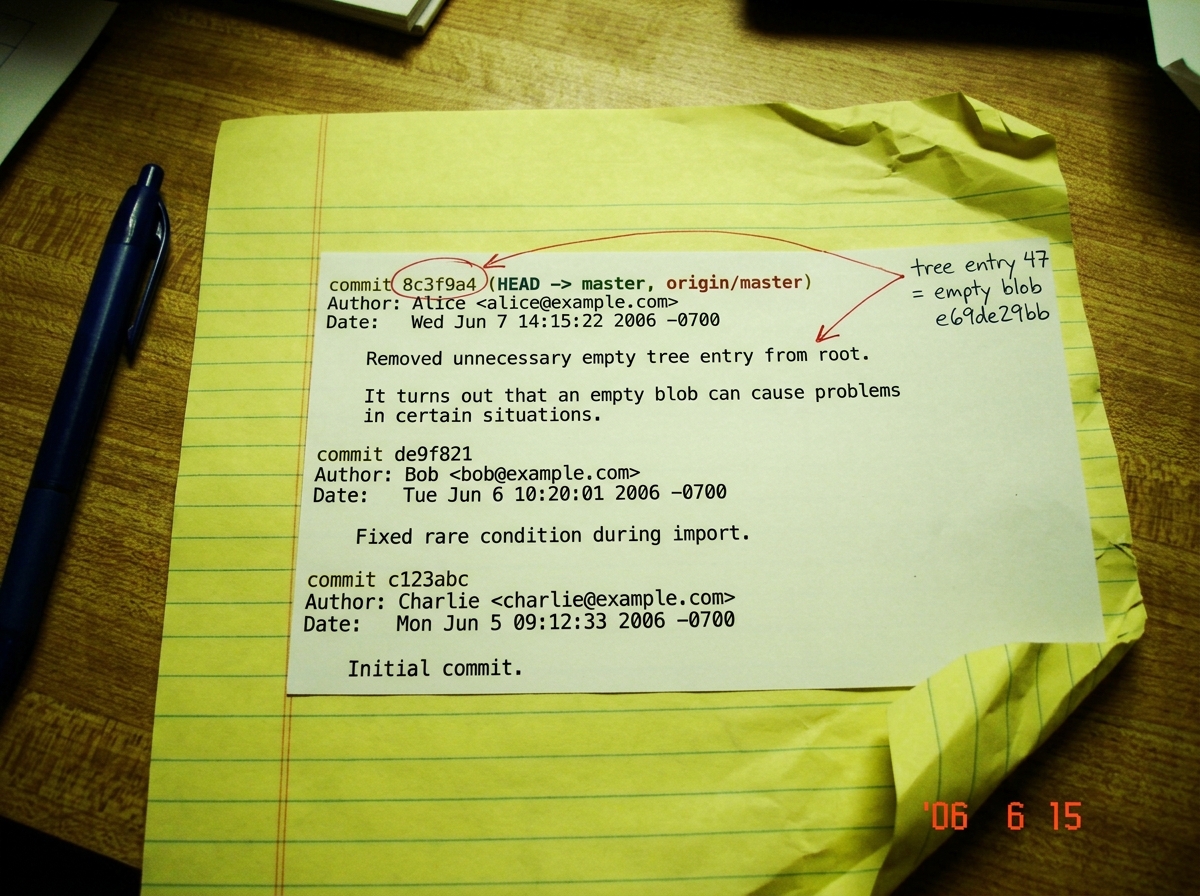 commit 8c3f9a4 (HEAD -> master, origin/master)
Author: Alice <alice@example.com>
Date:   Wed Jun 7 14:15:22 2006 -0700
Removed unnecessary empty tree entry from root.
It turns out that an empty blob can cause problems
in certain situations.
commit de9f821
Author: Bob <bob@example.com>
Date:   Tue Jun 6 10:20:01 2006 -0700
Fixed rare condition during import.
commit c123abc
Author: Charlie <charlie@example.com>
Date:   Mon Jun 5 09:12:33 2006 -0700
Initial commit.
tree entry 47
= empty blob
e69de29bb
'06 6 15